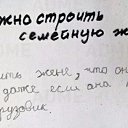 жно строить
семейную ж
ить жене, что он
даже если она
рузовик